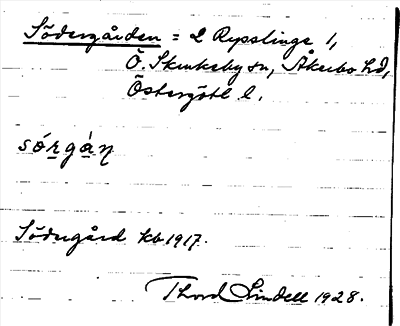 Södergården = 2 Rysslinge 1,
Ö. Skrukeby sn, Åkerbo hd,
Östergötl. l.
sórgàn
Södergård kb 1917.
Thord Lindell 1928.